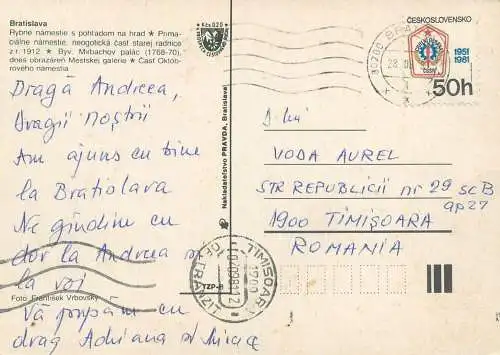 Bratislava
Rybné námestie s pohľadom na hrad ★ Prima-
ciálne námestie, neogotická časť starej radnice
z r. 1912 ★ Byv. Mirbachov palác (1768-70),
dnes obrazáreň Mestskej galerie ★ Časť Októb-
rového námestia
Dragă Andreea,
Dragii noștri
Am ajuns cu bine
la Bratislava
Ne gîndim cu
dor la Andreea si
la voi
Foto: František Vrbovský
Vă pupăm cu
drag Adriana si
Kčs 0,20
Nakladateľstvo PRAVDA, Bratislava
TZP-8
ČESKOSLOVENSKO
1951
1981
ČSSR
50h
VODA AUREL
STR REPUBLICII nr 29 sc B
ap 27
1900 TIMIȘOARA
ROMANIA
TIMISOARA